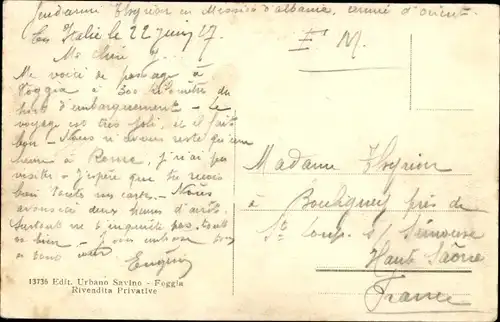 Gendarme Thyrion en Mission d'albanie, armée d'orient.
En Italie le 22 juin 17
F. M.
Ma chère
Me voici de passage à
Foggia à 300 kilomètre du
port d'embarquement - le
voyage est très joli, et il fait
bon - Nous n'avons resté qu'une
heure à Rome, je n'ai pas
visiter - J'espère que tu reçois
bien toute mes cartes - Nous
avons ici deux heures d'arrêt.
Surtout ne t'inquiète pas, tout
va bien - 
Eugène
Madame Thyrion
à Bouligney près de
St Loup s/ Semouse
Haute Saône
France
13735 Edit. Urbano Savino - Foggia
Rivendita Privative